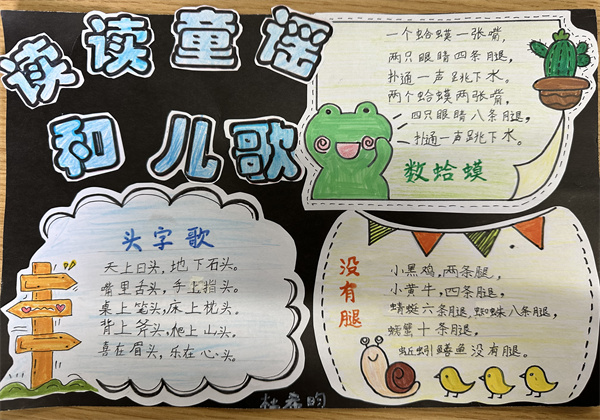 读读童谣
和儿歌
一个蛤蟆一张嘴，
两只眼睛四条腿，
扑通一声跳下水。
两个蛤蟆两张嘴，
四只眼睛八条腿，
扑通一声跳下水。
数蛤蟆
头字歌
天上日头，地下石头。
嘴里舌头，手上指头。
桌上笔头，床上枕头。
背上斧头，爬上山头。
喜在眉头，乐在心头。
没有腿
小黑鸡，两条腿，
小黄牛，四条腿。
蜻蜓六条腿，蜘蛛八条腿，
螃蟹十条腿，
蚯蚓鳝鱼没有腿。